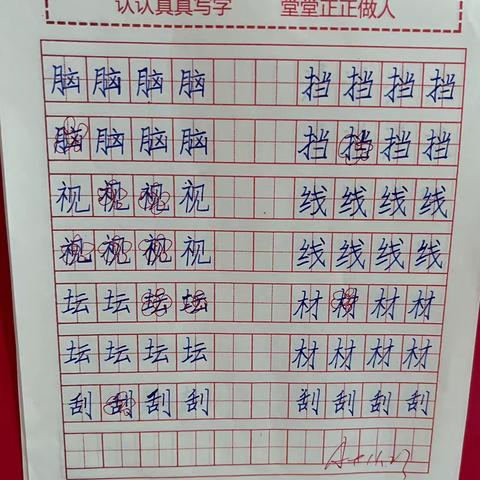 认认真真写字 堂堂正正做人
脑脑脑脑 挡挡挡挡
脑脑脑脑 挡挡挡挡
视视视视 线线线线
视视视视 线线线线
坛坛坛坛 材材材材
坛坛坛坛 材材材材
刮刮刮刮 刮刮刮刮